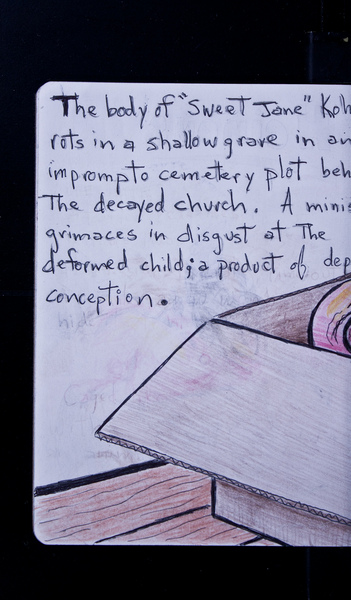 The body of "Sweet Jane" Koh
rots in a shallow grave in an
imprompto cemetery plot beh
The decayed church. A minis
grimaces in disgust at The
deformed child; a product of dep
conception.